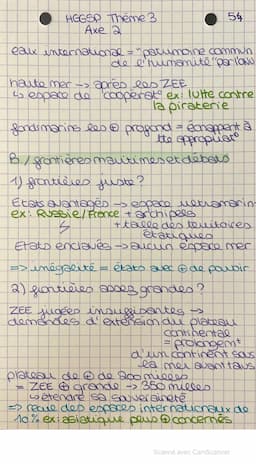 HGGSP Thème 3
54
Axe 2
eaux international = "patrimoine commun
de l'humanité" par l'ONU
haute mer -> après les ZEE
↳ espace de "coopérat° ex: lutte contre
la piraterie
fondmarins les ⊕ profond = échappent à
tte appropriat°
B/ frontières maritimes et débats
1) frontières juste ?
Etats avantagés -> espace ultramarin
ex: Russie/France + archipels
+ taille des territoires
étatiques
Etats enclavés -> aucun espace mer
=> inégalité = états avec ⊕ de pouvoir
2) frontières assez grandes ?
ZEE jugées insuffisantes ->
demandes d'extension du plateau
continental
= prolongemt
d'un continent sous
la mer avant talus
plateau de ⊕ de 200 milles
= ZEE ⊕ grande -> 350 milles
↳ étendre sa souveraineté
=> recul des espaces internationaux de
10% ex: asiatique peu ⊕ concernés
Scanné avec CamScanner